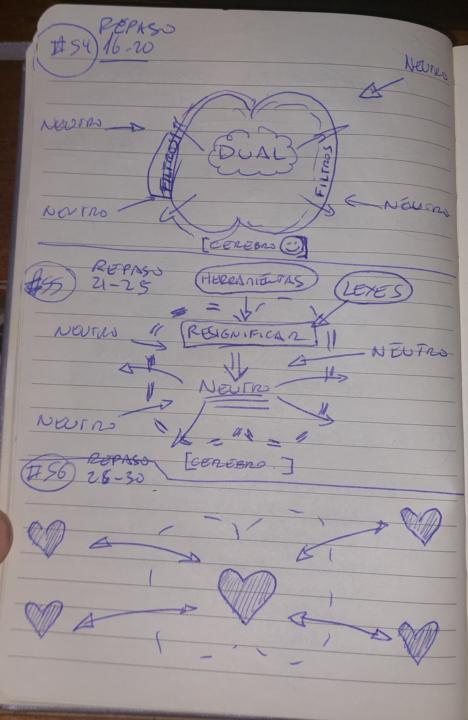 REPASO
#54 16-20
NEUTRO
NEUTRO
DUAL
FILTROS
FILTROS
NEUTRO
NEUTRO
[CEREBRO
#55 REPASO
21-25
HERRAMIENTAS
LEYES
NEUTRO
RESIGNIFICAR
NEUTRO
NEUTRO
NEUTRO
[CEREBRO..]
#56 REPASO
26-30